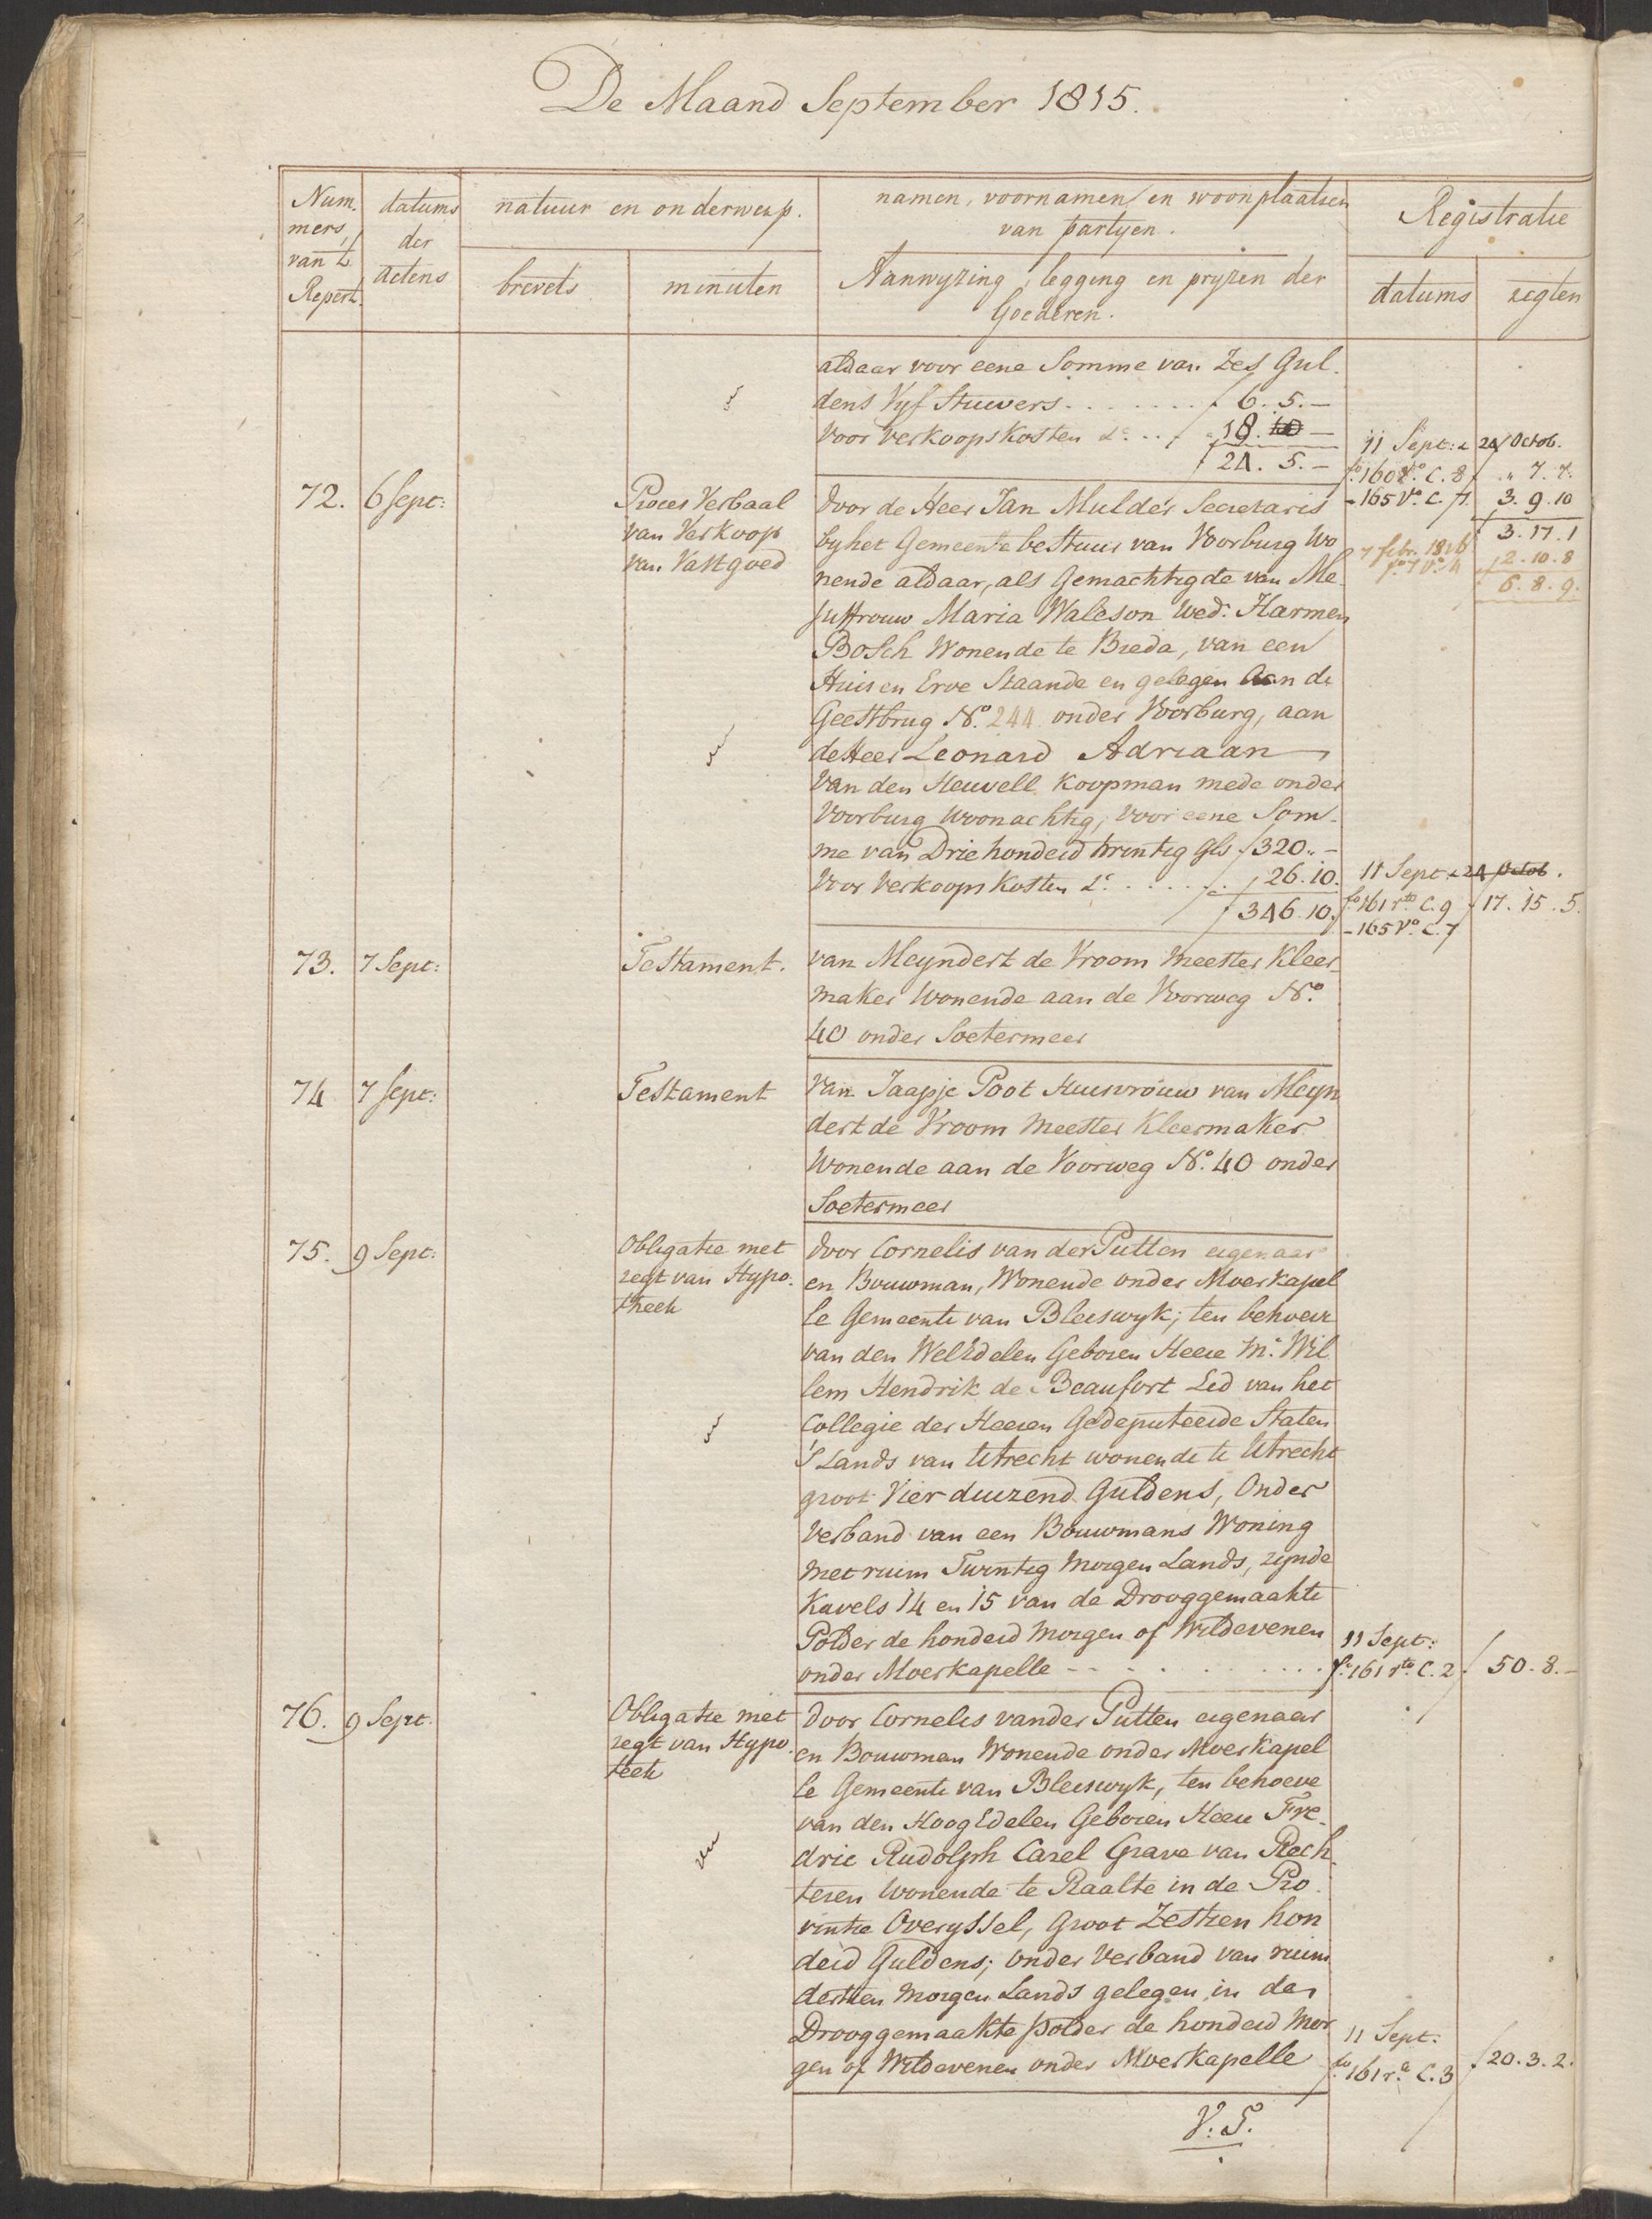 De Maand September 1815.
Num. mers, van 't Repert.
datums der actens
natuur en onderwerp.
brevets
minuten
namen, voornamen, en woonplaatsen
van partyen.
Aanwyzing, legging en pryzen der
Goederen.
Registratie
datums
regten
aldaar voor eene Somme van Zes Gul-
dens Vyf Stuivers . . . . . . . ƒ 6. 5. —
Voor verkoopskosten . . . 18. —
ƒ 24. 5. —
11 Sept: & 24 Octob.
fo 160 vo. C. 8 ƒ „ 7. 7.
- 165 Vo. C. 7. 3. 9. 10
3. 17. 1
7 febr. 1816
2. 10. 8
6. 8. 9.
72. 6 Sept:
Proces Verbaal
van Verkoop
van Vastgoed
door de Heer Jan Mulder Secretaris
by het Gemeente bestuur van Voorburg Wo
nende aldaar, als Gemachtigde van Me-
juffrouw Maria Waleson Wed: Harmen
Bosch Wonende te Breda, van een
Huis en Erve Staande en gelegen Aan de
Geestbrug No. 244 onder Voorburg, aan
de Heer Leonard Adriaan
Van den Heuvell Koopman mede onder
Voorburg Woonachtig, voor eene Som-
me van Driehonderd twintig Gls ƒ 320 „ —
Voor Verkoops Kosten . . . . . . ƒ 26. 10.
ƒ 346. 10.
11 Sept: & 24 Octob.
fo 161 rto C. 9 ƒ 17. 15. 5.
- 165 Vo. C. 7
73. 7 Sept:
Testament.
van Meyndert de Vroom Meester Kleer-
maker Wonende aan de Voorweg No.
40 onder Soetermeer
74 7 Sept:
Testament
Van Jaapje Poot Huisvrouw van Meyn
dert de Vroom Meester Kleermaker
Wonende aan de Voorweg No. 40 onder
Soetermeer
75. 9 Sept:
Obligatie met
regt van Hypo-
theek
door Cornelis van der Putten eigenaar
en Bouwman, Wonende onder Moerkapel
le Gemeente van Bleiswyk; ten behoeve
van den WelEdelen Geboren Heere Mr. Wil
lem Hendrik de Beaufort Led van het
Collegie der Heeren Gedeputeerde Staten
'S Lands van Utrecht wonende te Utrecht
groot Vier duizend Guldens, Onder
Verband van een Bouwmans Woning
met ruim Twintig Morgen Lands, zynde
Kavels 14 en 15 van de Drooggemaakte
Polder de honderd Morgen of Wildevenen
onder Moerkapelle - - . . . . . . .
11 Sept:
fo. 161 rto C. 2 ƒ 50. 8. —
76. 9 Sept.
Obligatie met
regt van Hypo
teek
door Cornelis vander Putten eigenaar
en Bouwman Wonende onder Moerkapel
le Gemeente van Bleiswyk, ten behoeve
van den HoogEdelen Geboren Heere Fre-
dric Rudolph Carel Grave van Rech
teren Wonende te Raalte in de Pro-
vintie Overyssel, Groot Zestien hon
derd Guldens; onder Verband van ruim
dertien Morgen Lands gelegen in de
Drooggemaakte polder de honderd Mor
gen of Wildevenen onder Moerkapelle
11 Sept:
fo 161 ro C. 3 ƒ 20. 3. 2.
V. T.